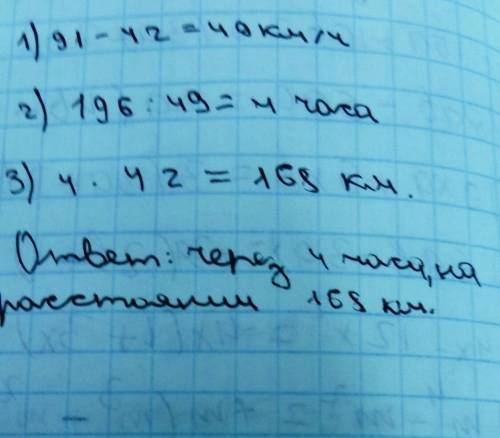 1) 91 - 42 = 49 км/ч
2) 196 : 49 = 4 часа
3) 4 . 42 = 168 км.
Ответ: через 4 часа, на
расстоянии 168 км.